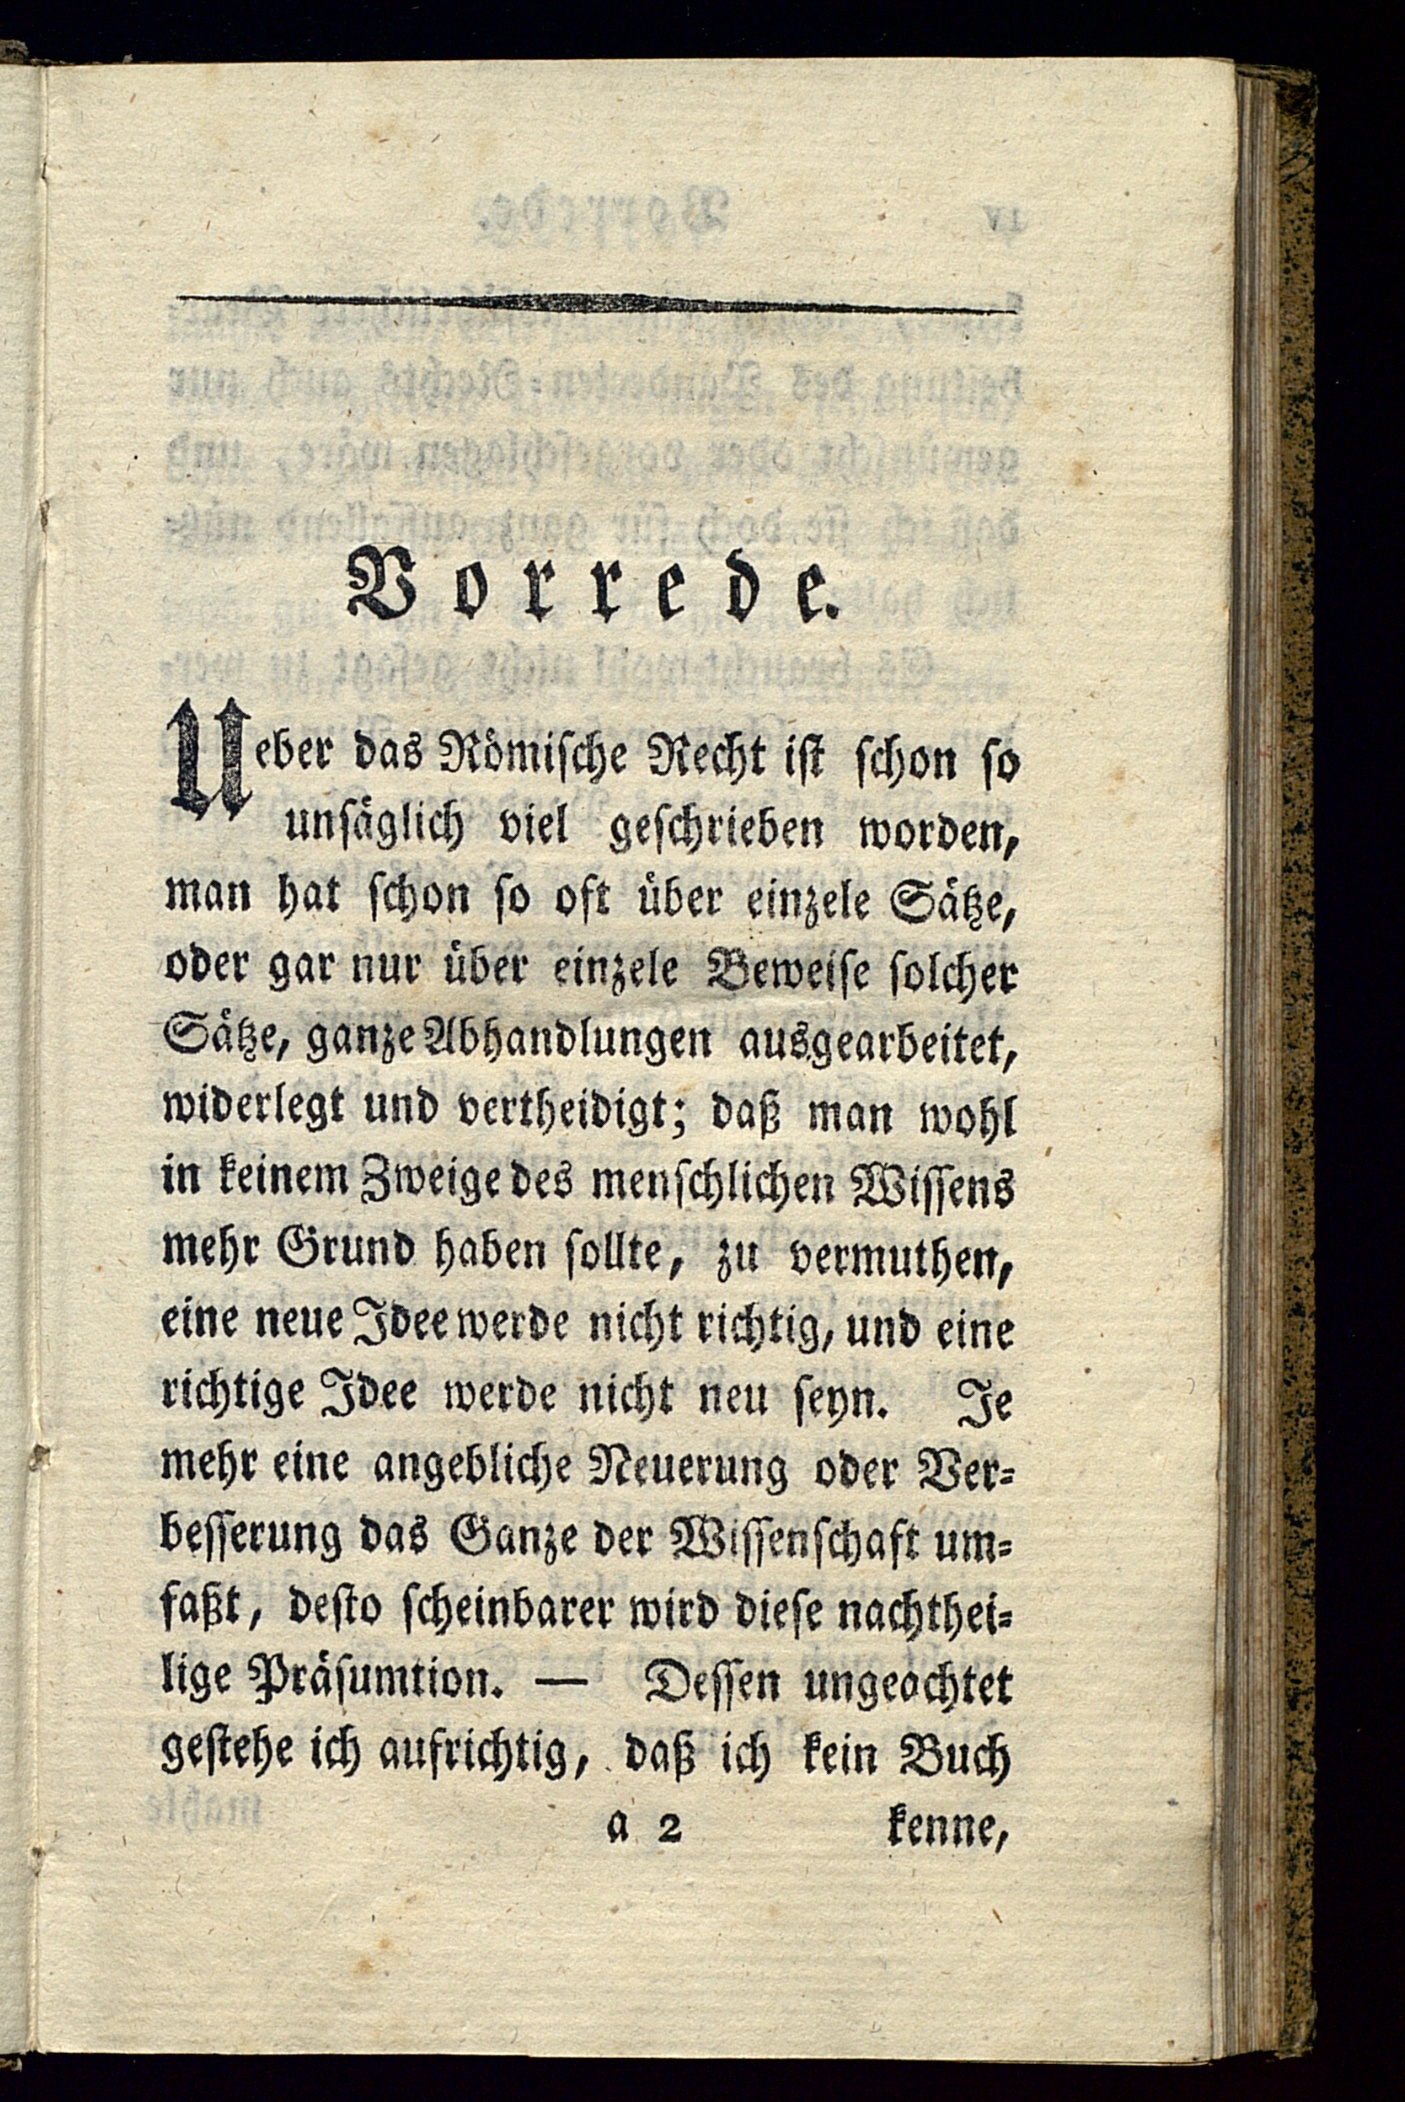 Vorrede.
Ueber das Römische Recht ist schon so
unsäglich viel geschrieben worden,
man hat schon so oft über einzele Sätze,
oder gar nur über einzele Beweise solcher
Sätze, ganze Abhandlungen ausgearbeitet,
widerlegt und vertheidigt; daß man wohl
in keinem Zweige des menschlichen Wissens
mehr Grund haben sollte, zu vermuthen,
eine neue Idee werde nicht richtig, und eine
richtige Idee werde nicht neu seyn. Je
mehr eine angebliche Neuerung oder Ver-
besserung das Ganze der Wissenschaft um-
faßt, desto scheinbarer wird diese nachthei-
lige Präsumtion. — Dessen ungeachtet
gestehe ich aufrichtig, daß ich kein Buch
a 2 kenne,